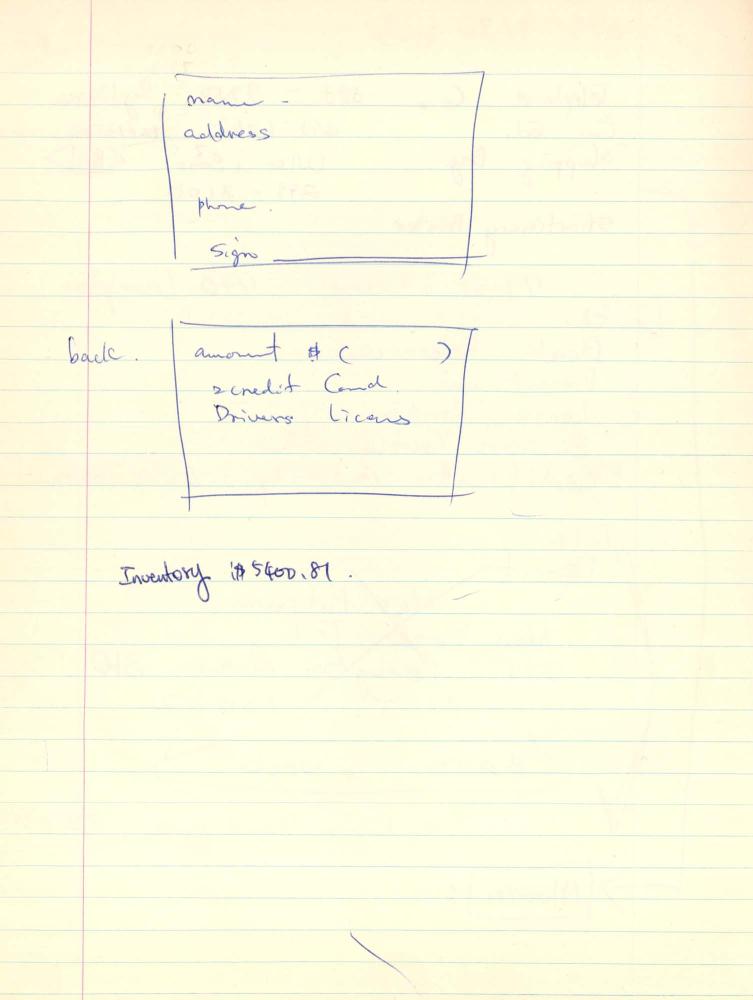 name -
address
phone .
Sign
back .
amount $ ( )
2 credit Card.
Drivers Licens
Inventory $5400.81 .